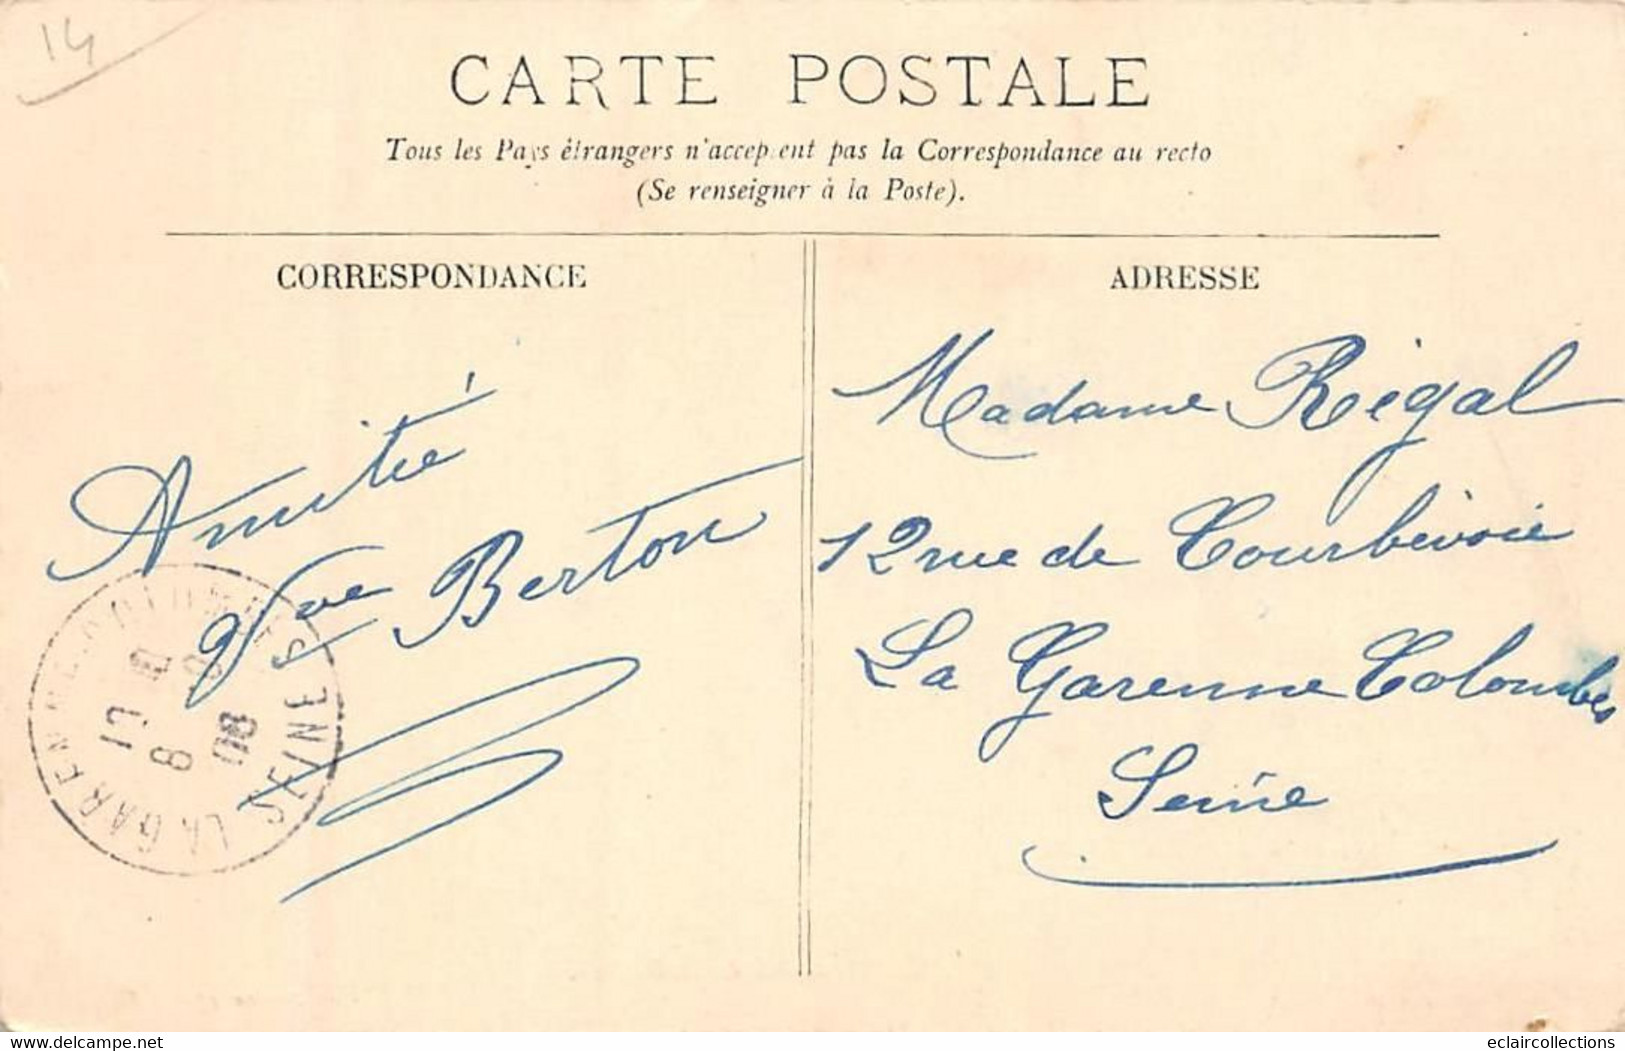 14
CARTE POSTALE
Tous les Pays étrangers n'acceptent pas la Correspondance au recto
(Se renseigner à la Poste).
CORRESPONDANCE
ADRESSE
Amitié
Vve Berton
Madame Régal
12 rue de Courbevoie
La Garenne Colombes
Seine
LA GARENNE-COLOMBES SEINE
8
www.delcampe.net
eclaircollections